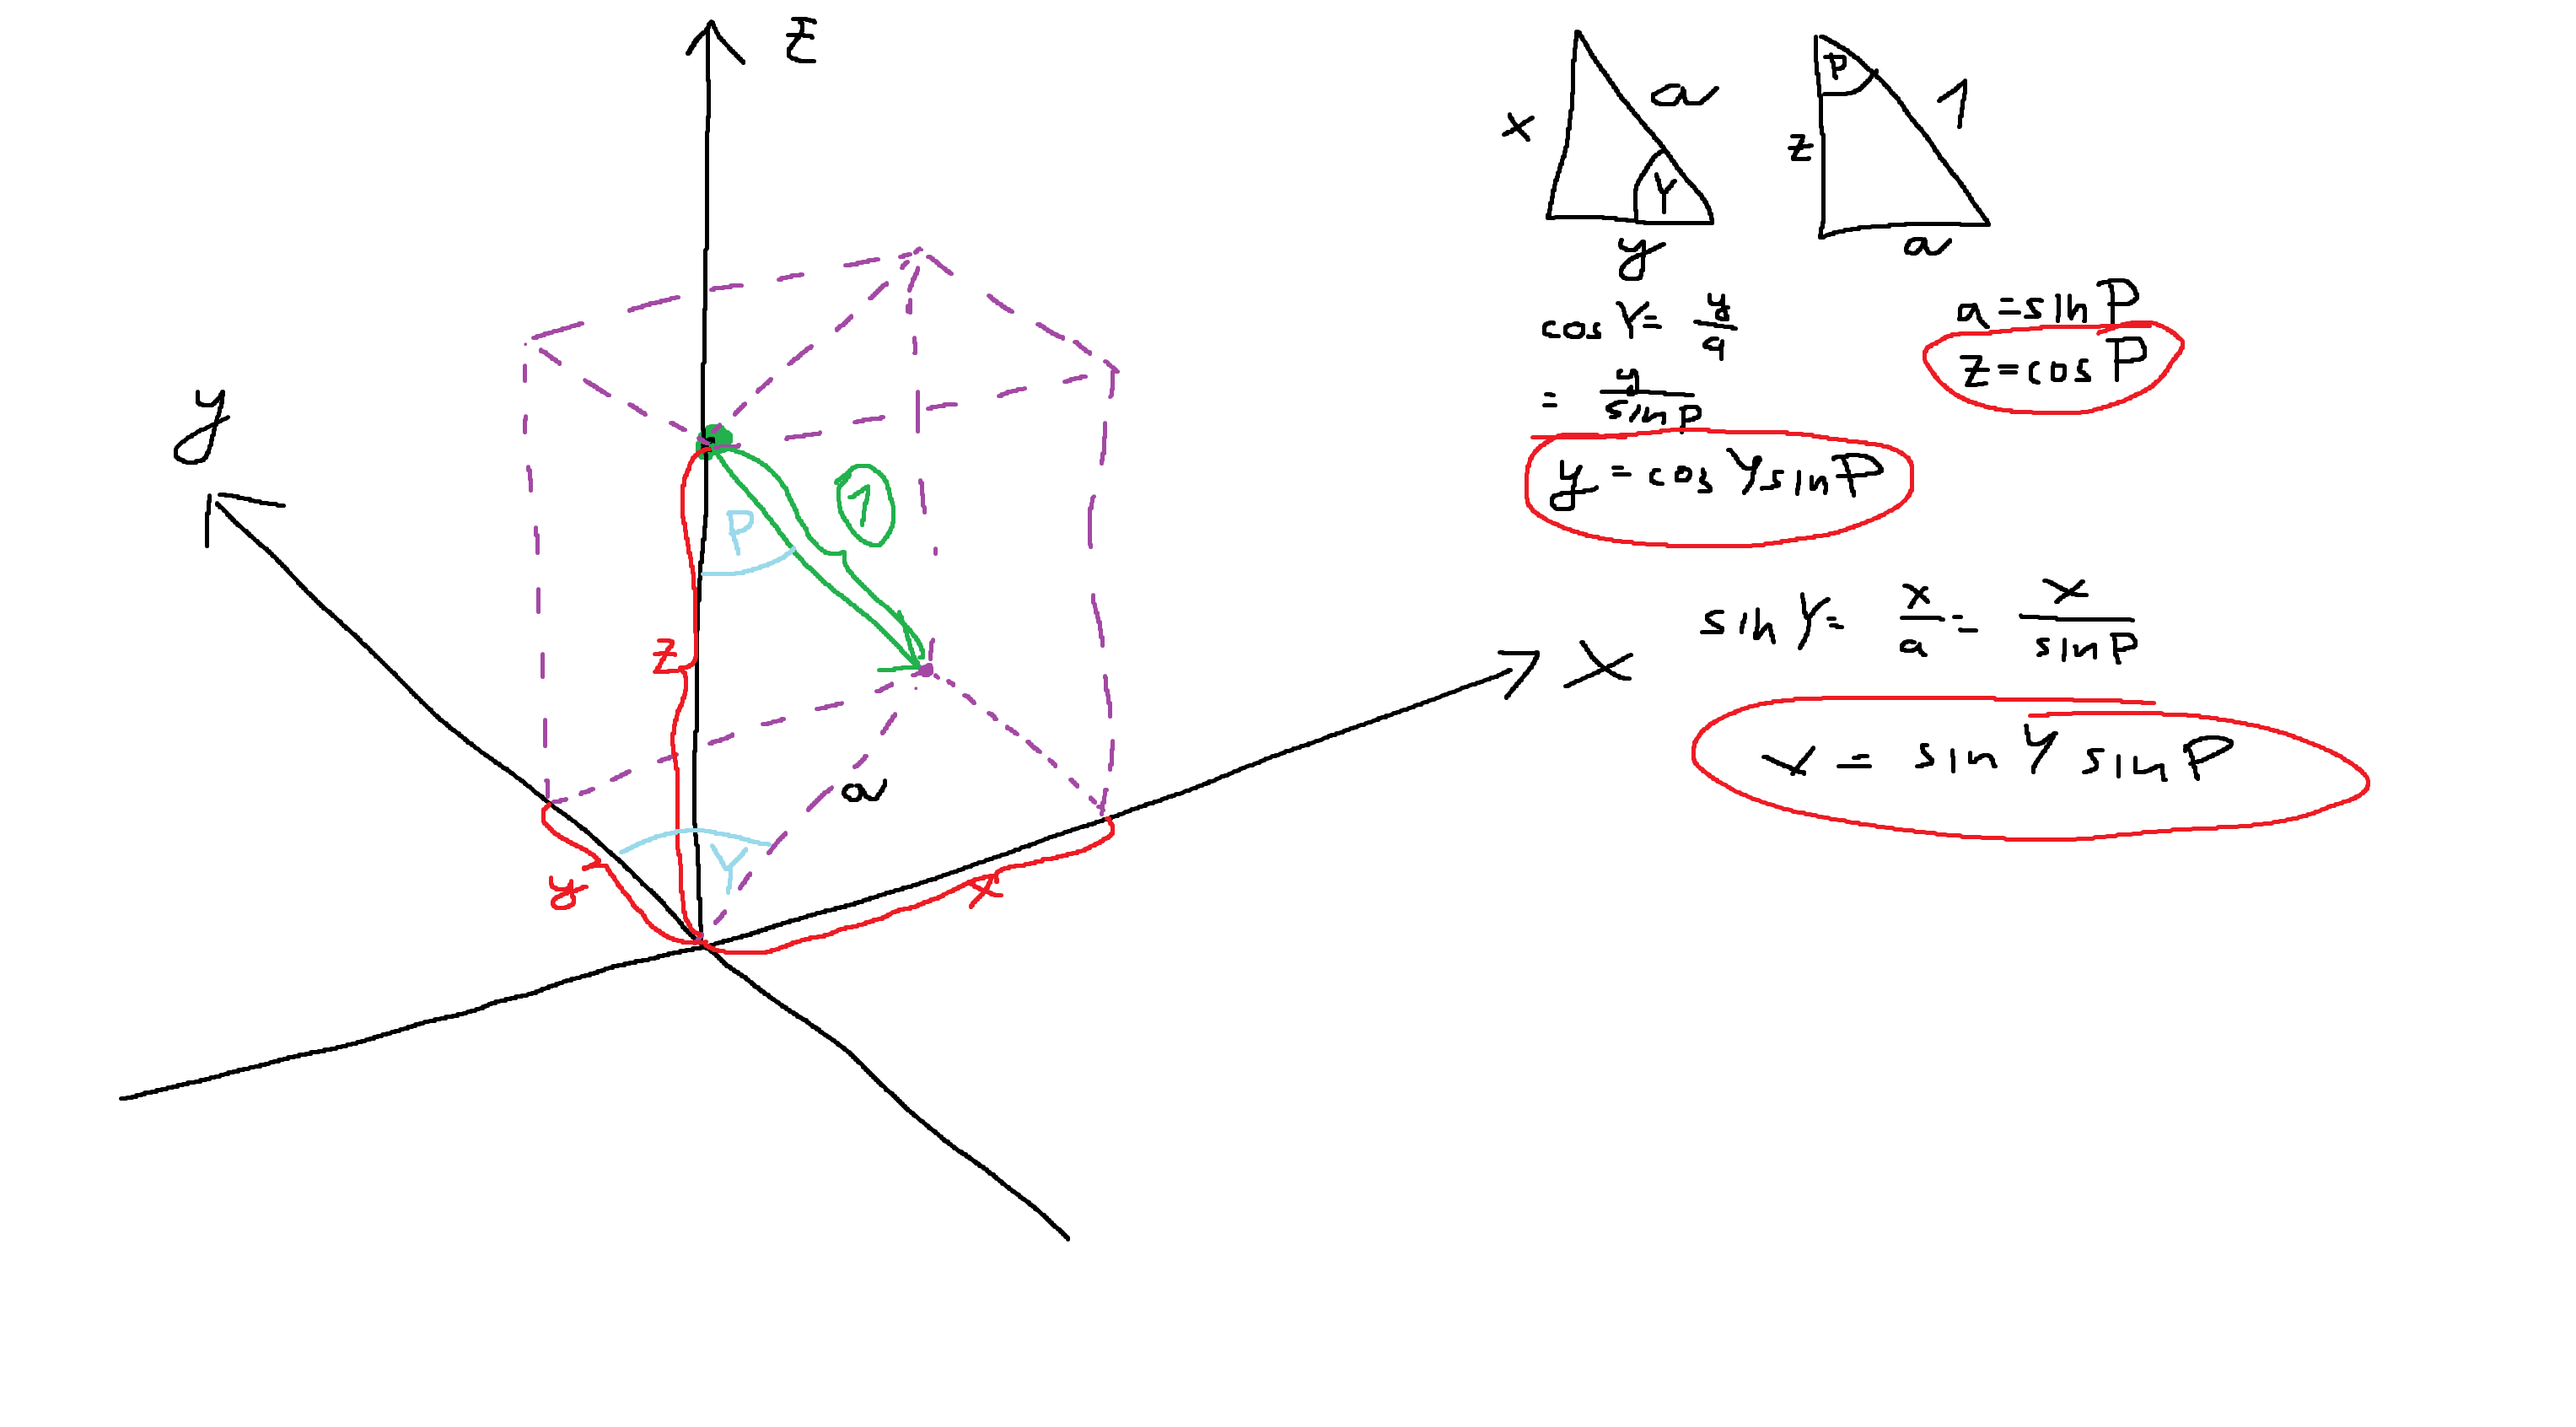 z
y
x
P
1
z
a
Y
y
x
x
a
Y
y
P
z
1
a
cos Y = y/a
= y/sin P
y = cos Y sin P
a = sin P
z = cos P
sin Y = x/a = x/sin P
x = sin Y sin P